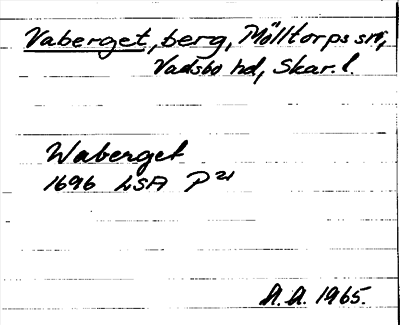 Vaberget, berg, Mölltorps sn,
Vadsbo hd, Skar. l.
Waberget
1696 LSA P 21
A. A. 1965.